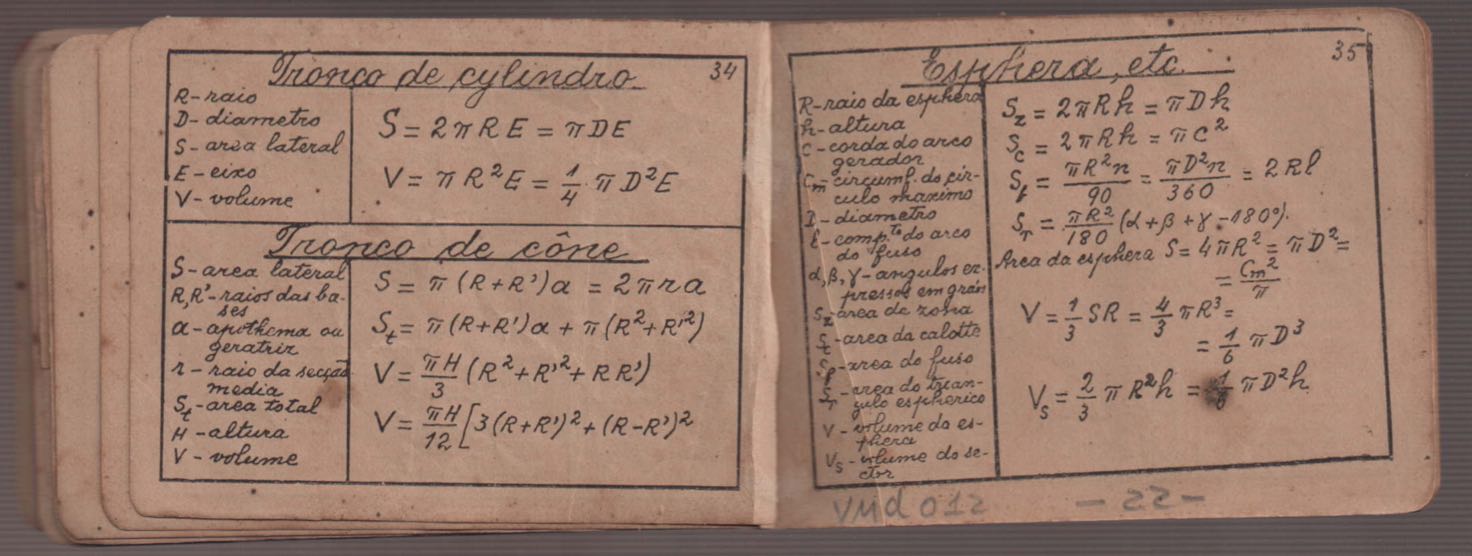 Tronco de cylindro 34
R-raio
D-diametro
S-area lateral
E-eixo
V-volume
S = 2πRE = πDE
V = πR²E = 1/4 πD²E
Tronco de cône
S-area lateral
R,R'-raios das ba-
ses
a-apothema ou
geratriz
r-raio da secção
media
S_t-area total
H-altura
V-volume
S = π(R+R')a = 2πra
S_t = π(R+R')a + π(R²+R'²)
V = πH/3 (R²+R'²+RR')
V = πH/12 [3(R+R')²+(R-R')²
Esphera, etc. 35
R-raio da esphera
h-altura
C-corda do arco
gerador
C_m-circumf. do cir-
culo maximo
D-diametro
l-comp.to do arco
do fuso
α,β,γ-angulos ex-
pressos em gráus
S_z-area de zona
S_c-area da calotte
S_f-area do fuso
S_T-area do trian-
gulo espherico
V-volume da es-
phera
V_s-volume do se-
ctor
S_z = 2πRh = πDh
S_c = 2πRh = πc²
S_f = πR²n/90 = πD²n/360 = 2Rl
S_T = πR²/180 (α+β+γ-180°).
Area da esphera S = 4πR² = πD² =
= C_m²/π
V = 1/3 SR = 4/3 πR³ =
= 1/6 πD³
V_s = 2/3 πR²h = 1/6 πD²h
VMd 012 - 22 -